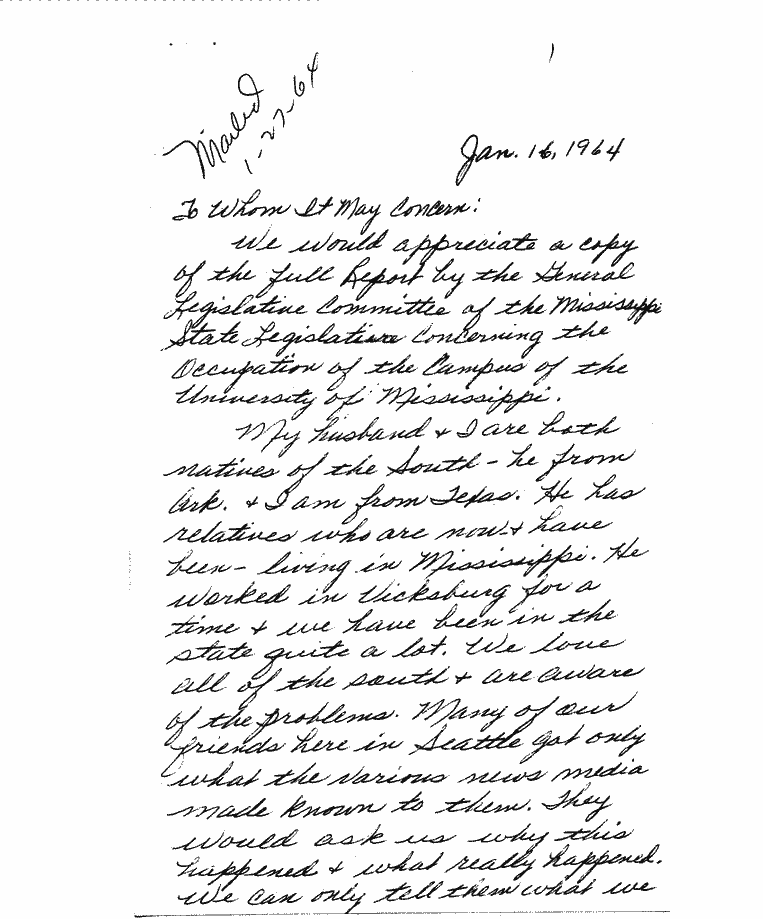 1
Mailed
1-27-64
Jan. 16, 1964
To Whom It May Concern:
We would appreciate a copy
of the full Report by the General
Legislative Committee of the Mississippi
State Legislature Concerning the
Occupation of the Campus of the
University of Mississippi.
My husband & I are both
natives of the South - he from
Ark. & I am from Texas. He has
relatives who are now & have
been - living in Mississippi. He
worked in Vicksburg for a
time & we have been in the
state quite a lot. We love
all of the south & are aware
of the problems. Many of our
friends here in Seattle got only
what the various news media
made known to them. They
would ask us why this
happened & what really happened.
We can only tell them what we